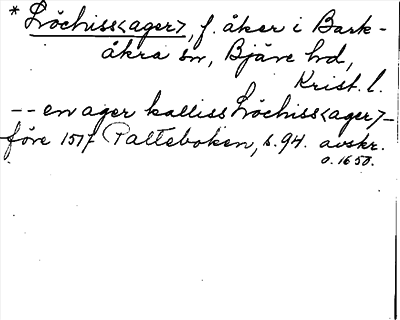 * Löchiss<ager>, f. åker i Bark-
åkra sn, Bjäre hd,
Krist. l.
-- en ager kalliss Löchiss<ager> --
före 1517 Palteboken, s. 94. avskr.
o. 1650.